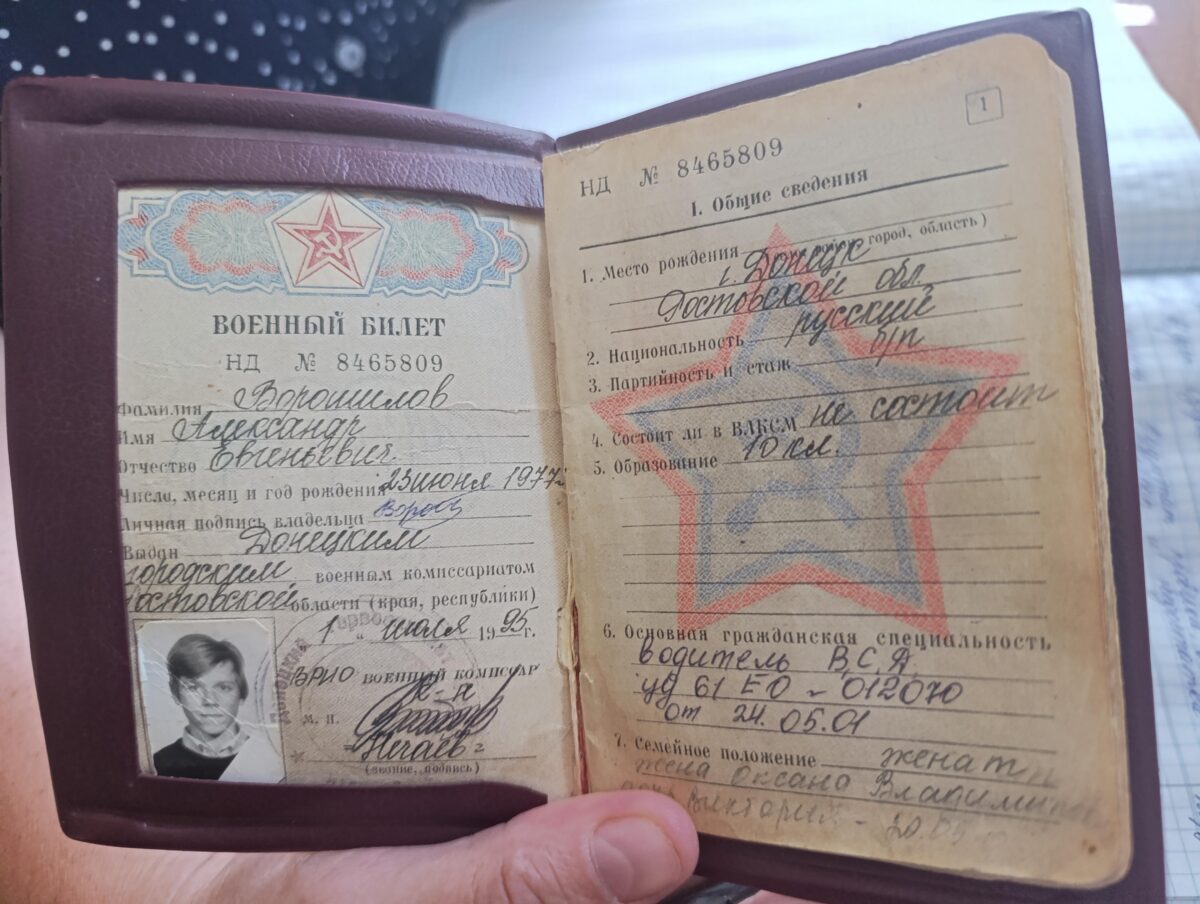 ВОЕННЫЙ БИЛЕТ
НД № 8465809
Фамилия Ворошилов
Имя Александр
Отчество Евгеньевич
Число, месяц и год рождения 23 июня 1977
Личная подпись владельца
Выдан Донецким
городским военным комиссариатом
Ростовской области (края, республики)
1 „ июля 1995 г.
ВРИО ВОЕННЫЙ КОМИССАР
М. П. п-к
Нечаев
(звание, подпись)
1
НД № 8465809
1. Общие сведения
1. Место рождения город, область)
г. Донецк
Ростовской обл.
2. Национальность русский
3. Партийность и стаж б/п
4. Состоит ли в ВЛКСМ не состоит
5. Образование 10 кл.
6. Основная гражданская специальность
водитель В,С,Д,
уд 61 ЕО - 012070
от 24.05.01
7. Семейное положение женат
жена Оксана Владими
дочь Виктория -